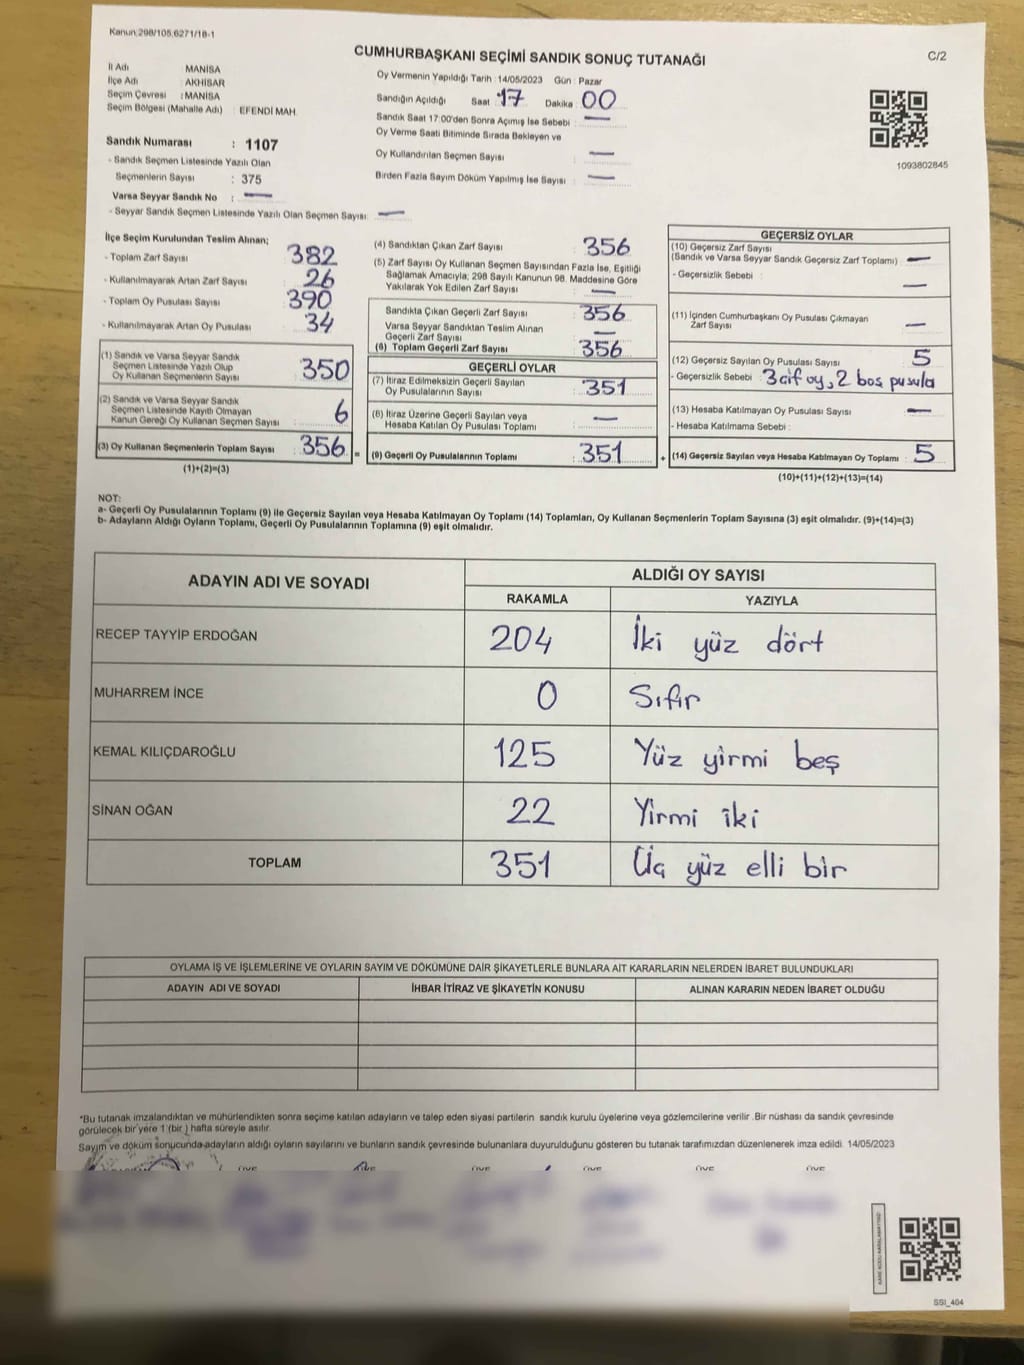 Kanun:298/105,6271/18-1
CUMHURBAŞKANI SEÇİMİ SANDIK SONUÇ TUTANAĞI
C/2
İl Adı MANİSA
İlçe Adı AKHİSAR
Seçim Çevresi : MANİSA
Seçim Bölgesi (Mahalle Adı) : EFENDİ MAH.
Sandık Numarası : 1107
- Sandık Seçmen Listesinde Yazılı Olan
Seçmenlerin Sayısı : 375
Varsa Seyyar Sandık No : —
- Seyyar Sandık Seçmen Listesinde Yazılı Olan Seçmen Sayısı: —
Oy Vermenin Yapıldığı Tarih :14/05/2023 Gün : Pazar
Sandığın Açıldığı Saat 17 Dakika : 00
Sandık Saat 17:00'den Sonra Açımış İse Sebebi : —
Oy Verme Saati Bitiminde Sırada Bekleyen ve
Oy Kullandırılan Seçmen Sayısı : —
Birden Fazla Sayım Döküm Yapılmış İse Sayısı : —
1093802845
İlçe Seçim Kurulundan Teslim Alınan;
- Toplam Zarf Sayısı : 382
- Kullanılmayarak Artan Zarf Sayısı : 26
- Toplam Oy Pusulası Sayısı : 390
- Kullanılmayarak Artan Oy Pusulası : 34
(1) Sandık ve Varsa Seyyar Sandık
Seçmen Listesinde Yazılı Olup
Oy Kullanan Seçmenlerin Sayısı : 350
(2) Sandık ve Varsa Seyyar Sandık
Seçmen Listesinde Kayıtlı Olmayan
Kanun Gereği Oy Kullanan Seçmen Sayısı : 6
(3) Oy Kullanan Seçmenlerin Toplam Sayısı : 356 =
(1)+(2)=(3)
(4) Sandıktan Çıkan Zarf Sayısı : 356
(5) Zarf Sayısı Oy Kullanan Seçmen Sayısından Fazla İse, Eşitliği
Sağlamak Amacıyla; 298 Sayılı Kanunun 98. Maddesine Göre
Yakılarak Yok Edilen Zarf Sayısı : —
Sandıkta Çıkan Geçerli Zarf Sayısı : 356
Varsa Seyyar Sandıktan Teslim Alınan
Geçerli Zarf Sayısı : —
(6) Toplam Geçerli Zarf Sayısı : 356
GEÇERLİ OYLAR
(7) İtiraz Edilmeksizin Geçerli Sayılan
Oy Pusulalarının Sayısı : 351
(8) İtiraz Üzerine Geçerli Sayılan veya
Hesaba Katılan Oy Pusulası Toplamı : —
(9) Geçerli Oy Pusulalarının Toplamı : 351 +
GEÇERSİZ OYLAR
(10) Geçersiz Zarf Sayısı
(Sandık ve Varsa Seyyar Sandık Geçersiz Zarf Toplamı) : —
- Geçersizlik Sebebi : —
(11) İçinden Cumhurbaşkanı Oy Pusulası Çıkmayan
Zarf Sayısı : —
(12) Geçersiz Sayılan Oy Pusulası Sayısı : 5
- Geçersizlik Sebebi : 3 çift oy, 2 boş pusula
(13) Hesaba Katılmayan Oy Pusulası Sayısı : —
- Hesaba Katılmama Sebebi :
(14) Geçersiz Sayılan veya Hesaba Katılmayan Oy Toplamı : 5
(10)+(11)+(12)+(13)=(14)
NOT:
a- Geçerli Oy Pusulalarının Toplamı (9) ile Geçersiz Sayılan veya Hesaba Katılmayan Oy Toplamı (14) Toplamları, Oy Kullanan Seçmenlerin Toplam Sayısına (3) eşit olmalıdır. (9)+(14)=(3)
b- Adayların Aldığı Oyların Toplamı, Geçerli Oy Pusulalarının Toplamına (9) eşit olmalıdır.
ADAYIN ADI VE SOYADI ALDIĞI OY SAYISI
RAKAMLA YAZIYLA
RECEP TAYYİP ERDOĞAN 204 İki yüz dört
MUHARREM İNCE 0 Sıfır
KEMAL KILIÇDAROĞLU 125 Yüz yirmi beş
SİNAN OĞAN 22 Yirmi iki
TOPLAM 351 Üç yüz elli bir
OYLAMA İŞ VE İŞLEMLERİNE VE OYLARIN SAYIM VE DÖKÜMÜNE DAİR ŞİKAYETLERLE BUNLARA AİT KARARLARIN NELERDEN İBARET BULUNDUKLARI
ADAYIN ADI VE SOYADI İHBAR İTİRAZ VE ŞİKAYETİN KONUSU ALINAN KARARIN NEDEN İBARET OLDUĞU
*Bu tutanak imzalandıktan ve mühürlendikten sonra seçime katılan adayların ve talep eden siyasi partilerin sandık kurulu üyelerine veya gözlemcilerine verilir .Bir nüshası da sandık çevresinde
görülecek bir yere 1 (bir ) hafta süreyle asılır.
Sayım ve döküm sonucunda adayların aldığı oyların sayılarını ve bunların sandık çevresinde bulunanlara duyurulduğunu gösteren bu tutanak tarafımızdan düzenlenerek imza edildi. 14/05/2023
SSI_404